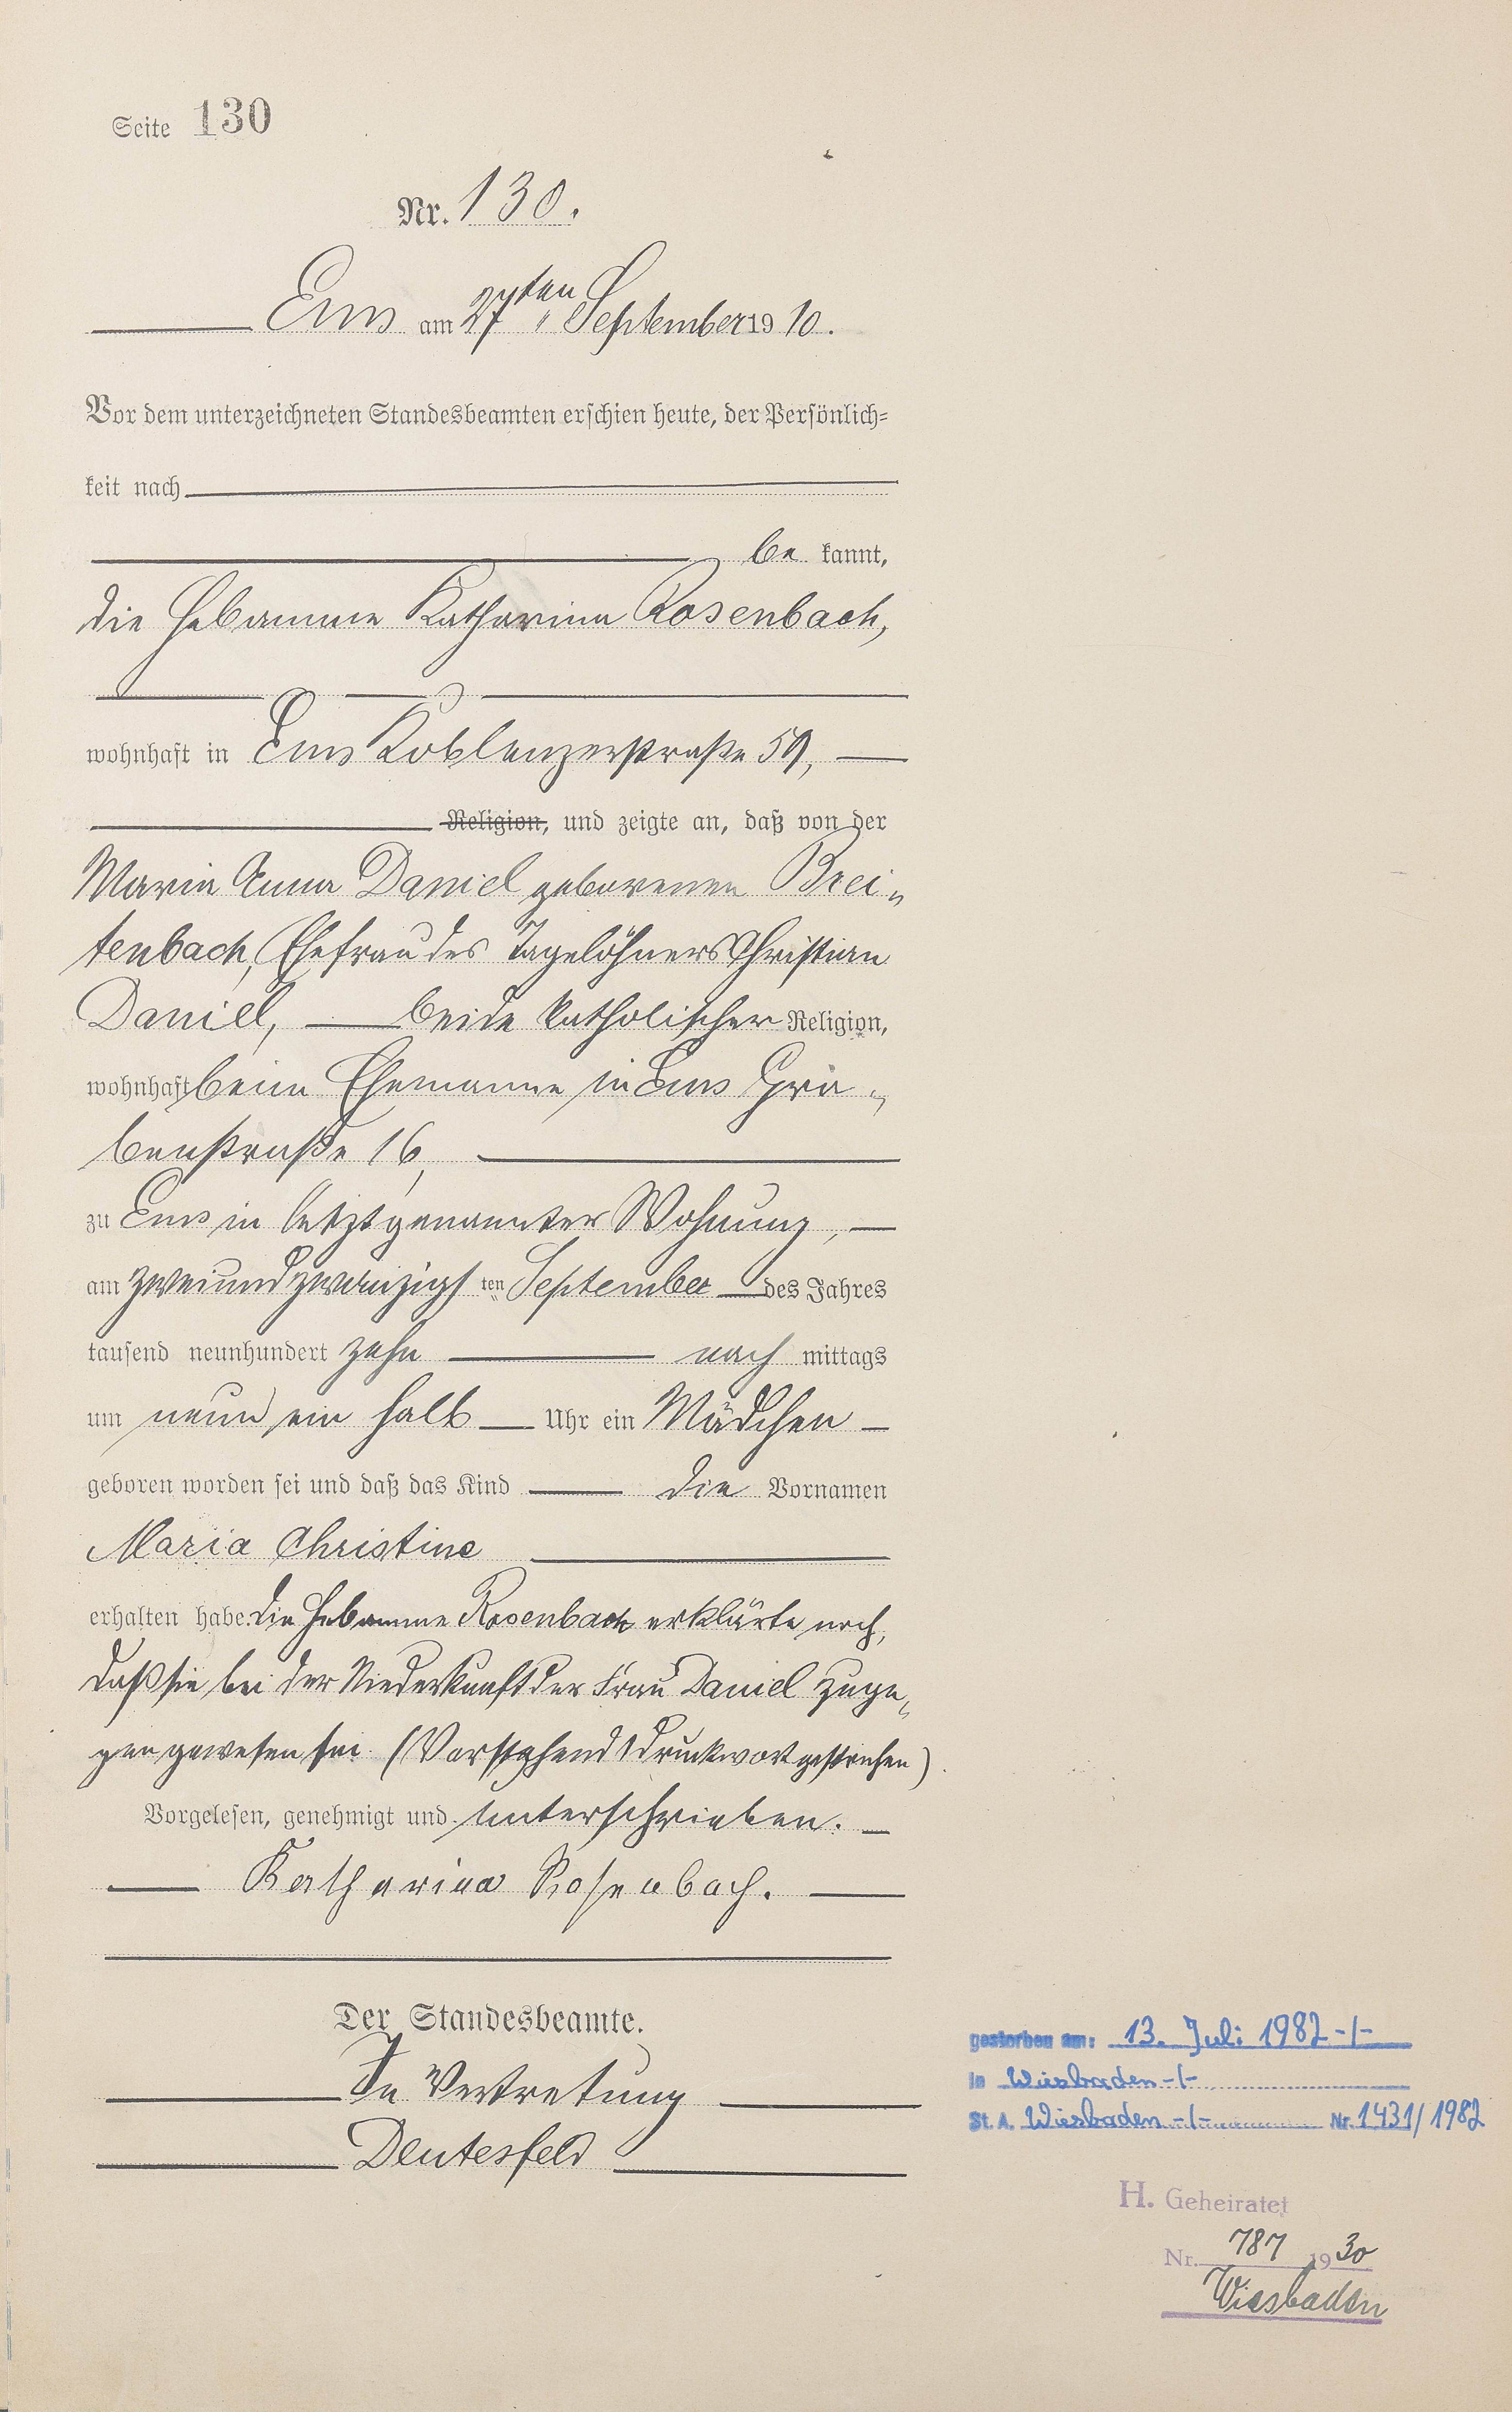 Seite 130
Nr. 130.
Ems am 27ten September 1910.
Vor dem unterzeichneten Standesbeamten erschien heute, der Persönlich-
keit nach
be kannt,
die Hebamme Katharina Rosenbach,
wohnhaft in Ems Koblenzerstraße 59,
Religion, und zeigte an, daß von der
Maria Anna Daniel geborenen Brei-
tenbach, Ehefrau des Tagelöhners Christian
Daniel, beide katholischer Religion,
wohnhaft beim Ehemanne in Ems Gra-
benstraße 16,
zu Ems in letztgenannter Wohnung,
am zweiundzwanzigsten September des Jahres
tausend neunhundert zehn nach mittags
um neun ein halb Uhr ein Mädchen
geboren worden sei und daß das Kind die Vornamen
Maria Christine
erhalten habe. Die Hebamme Rosenbach erklärte noch,
daß sie bei der Niederkunft der Frau Daniel zuge-
gen gewesen sei. (Vorstehend 1 Druckwort gestrichen).
Vorgelesen, genehmigt und unterschrieben.
Katharina Rosenbach.
Der Standesbeamte.
In Vertretung
Deutesfeld
gestorben am: 13. Juli 1982 -/-
in Wiesbaden -/-
St. A. Wiesbaden -/- Nr. 1431/1982
H. Geheiratet
Nr. 787 1930
Wiesbaden